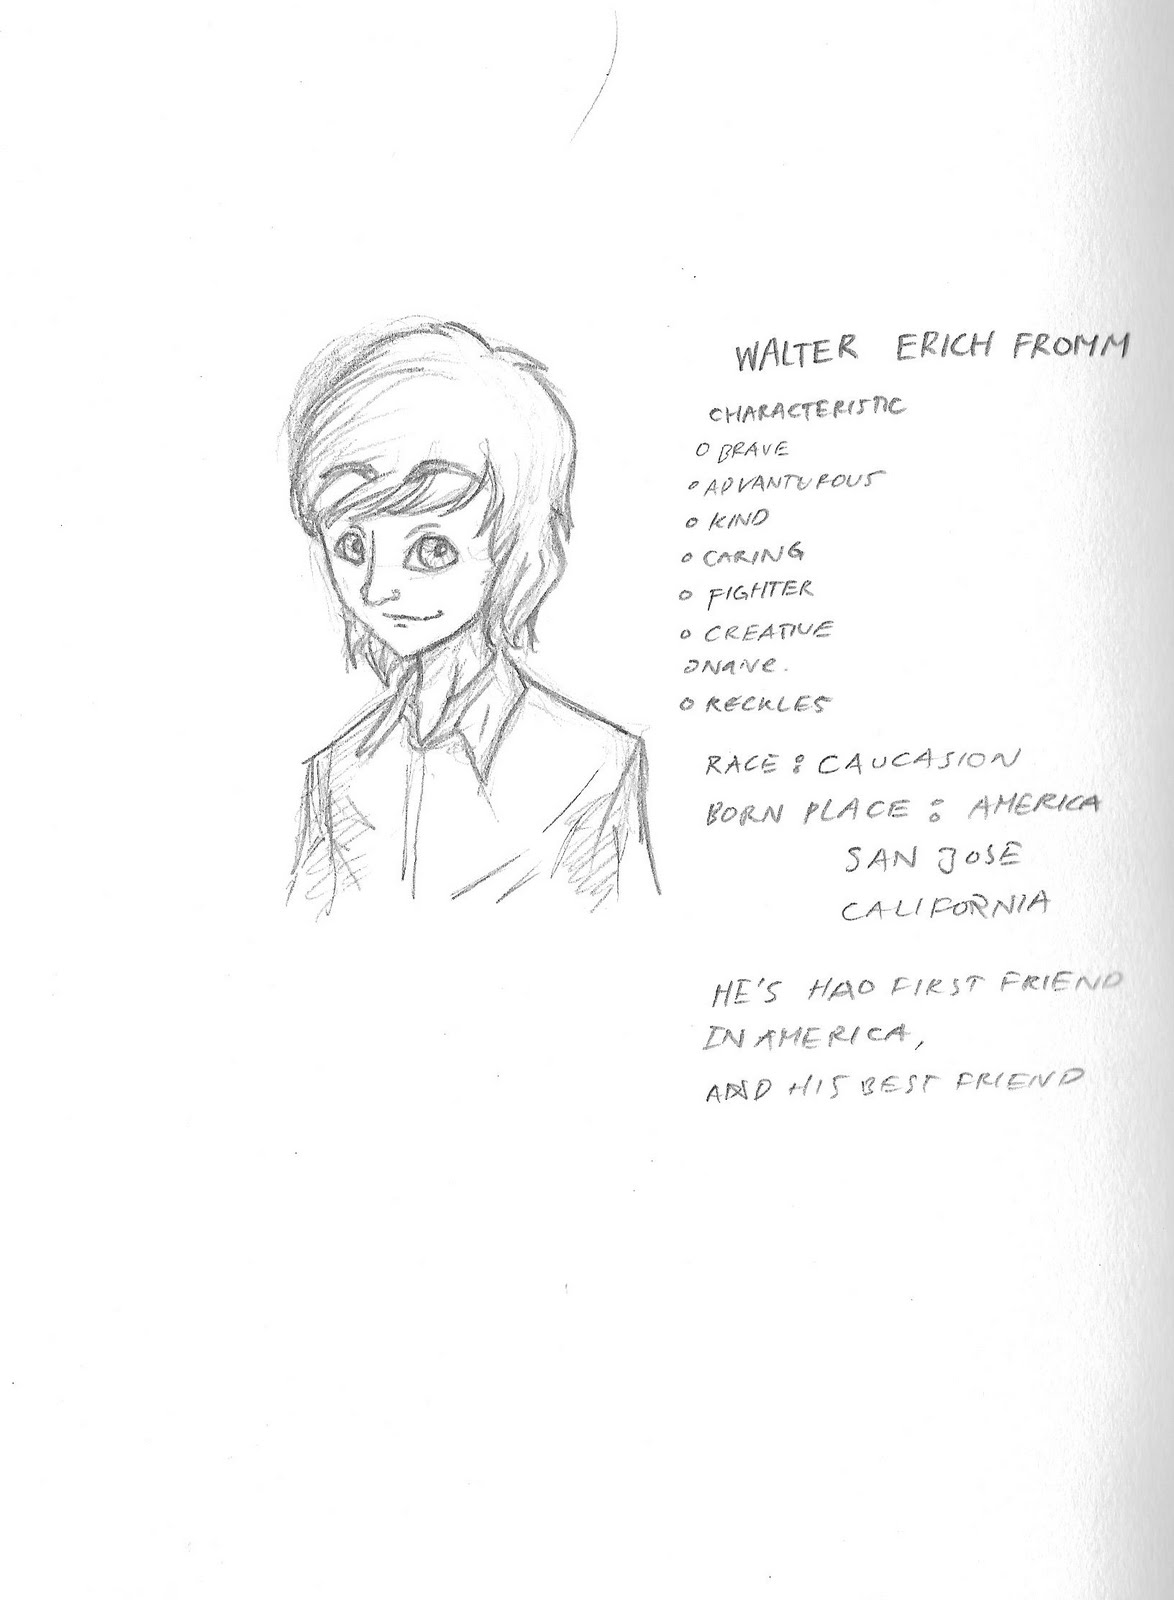 WALTER ERICH FROMM
CHARACTERISTIC
O BRAVE
O ADVANTUROUS
O KIND
O CARING
O FIGHTER
O CREATIVE
O NAIVE.
O RECKLES
RACE : CAUCASION
BORN PLACE : AMERICA
SAN JOSE
CALIFORNIA
HE'S HAD FIRST FRIEND
IN AMERICA,
AND HIS BEST FRIEND